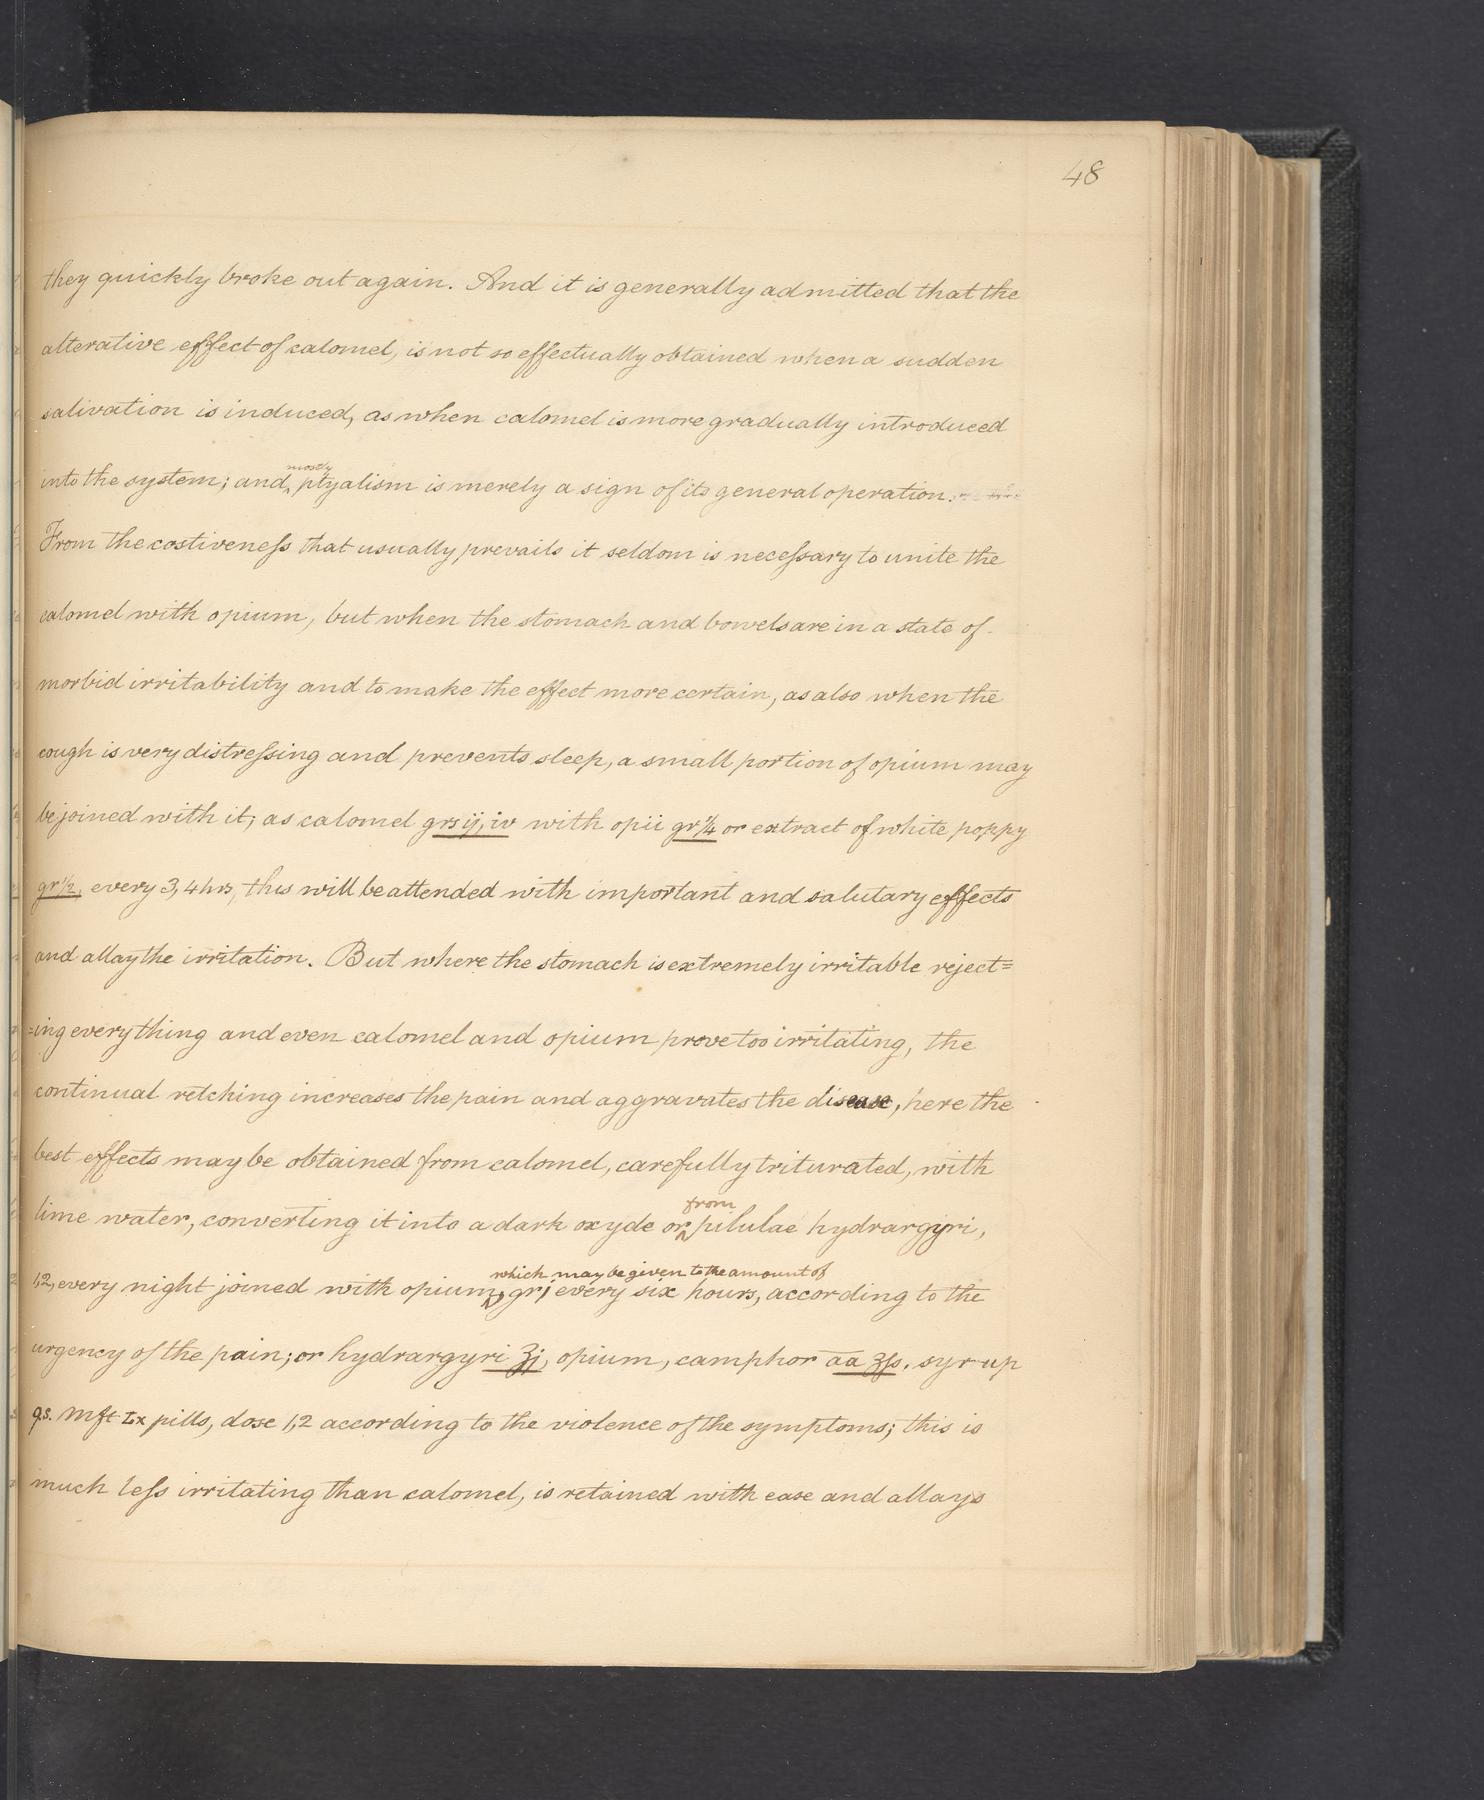 48
they quickly broke out again. And it is generally admitted that the
alterative effect of calomel, is not so effectually obtained when a sudden
salivation is induced, as when calomel is more gradually introduced
mostly
into the system; and ‸ ptyalism is merely a sign of its general operation.
From the costiveneſs that usually prevails it seldom is neceſsary to unite the
calomel with opium, but when the stomach and bowels are in a state of
morbid irritability and to make the effect more certain, as also when the
cough is very distreſsing and prevents sleep, a small portion of opium may
be joined with it; as calomel grs ij, iv with opii gr ¼ or extract of white poppy
gr ½, every 3, 4 hrs, this will be attended with important and salutary effects
and allay the irritation. But where the stomach is extremely irritable reject=
=ing every thing and even calomel and opium prove too irritating, the
continual retching increases the pain and aggravates the disease, here the
best effects may be obtained from calomel, carefully triturated, with
from
lime water, converting it into a dark oxyde or ‸ pilulae hydrargyri,
which may be given to the amount of
1,2, every night joined with opium, ‸ grj every six hours, according to the
urgency of the pain; or hydrargyri ʒj, opium, camphor aa ʒſs. syrup
q.s. mft Lx pills, dose 1,2 according to the violence of the symptoms; this is
much leſs irritating than calomel, is retained with ease and allays